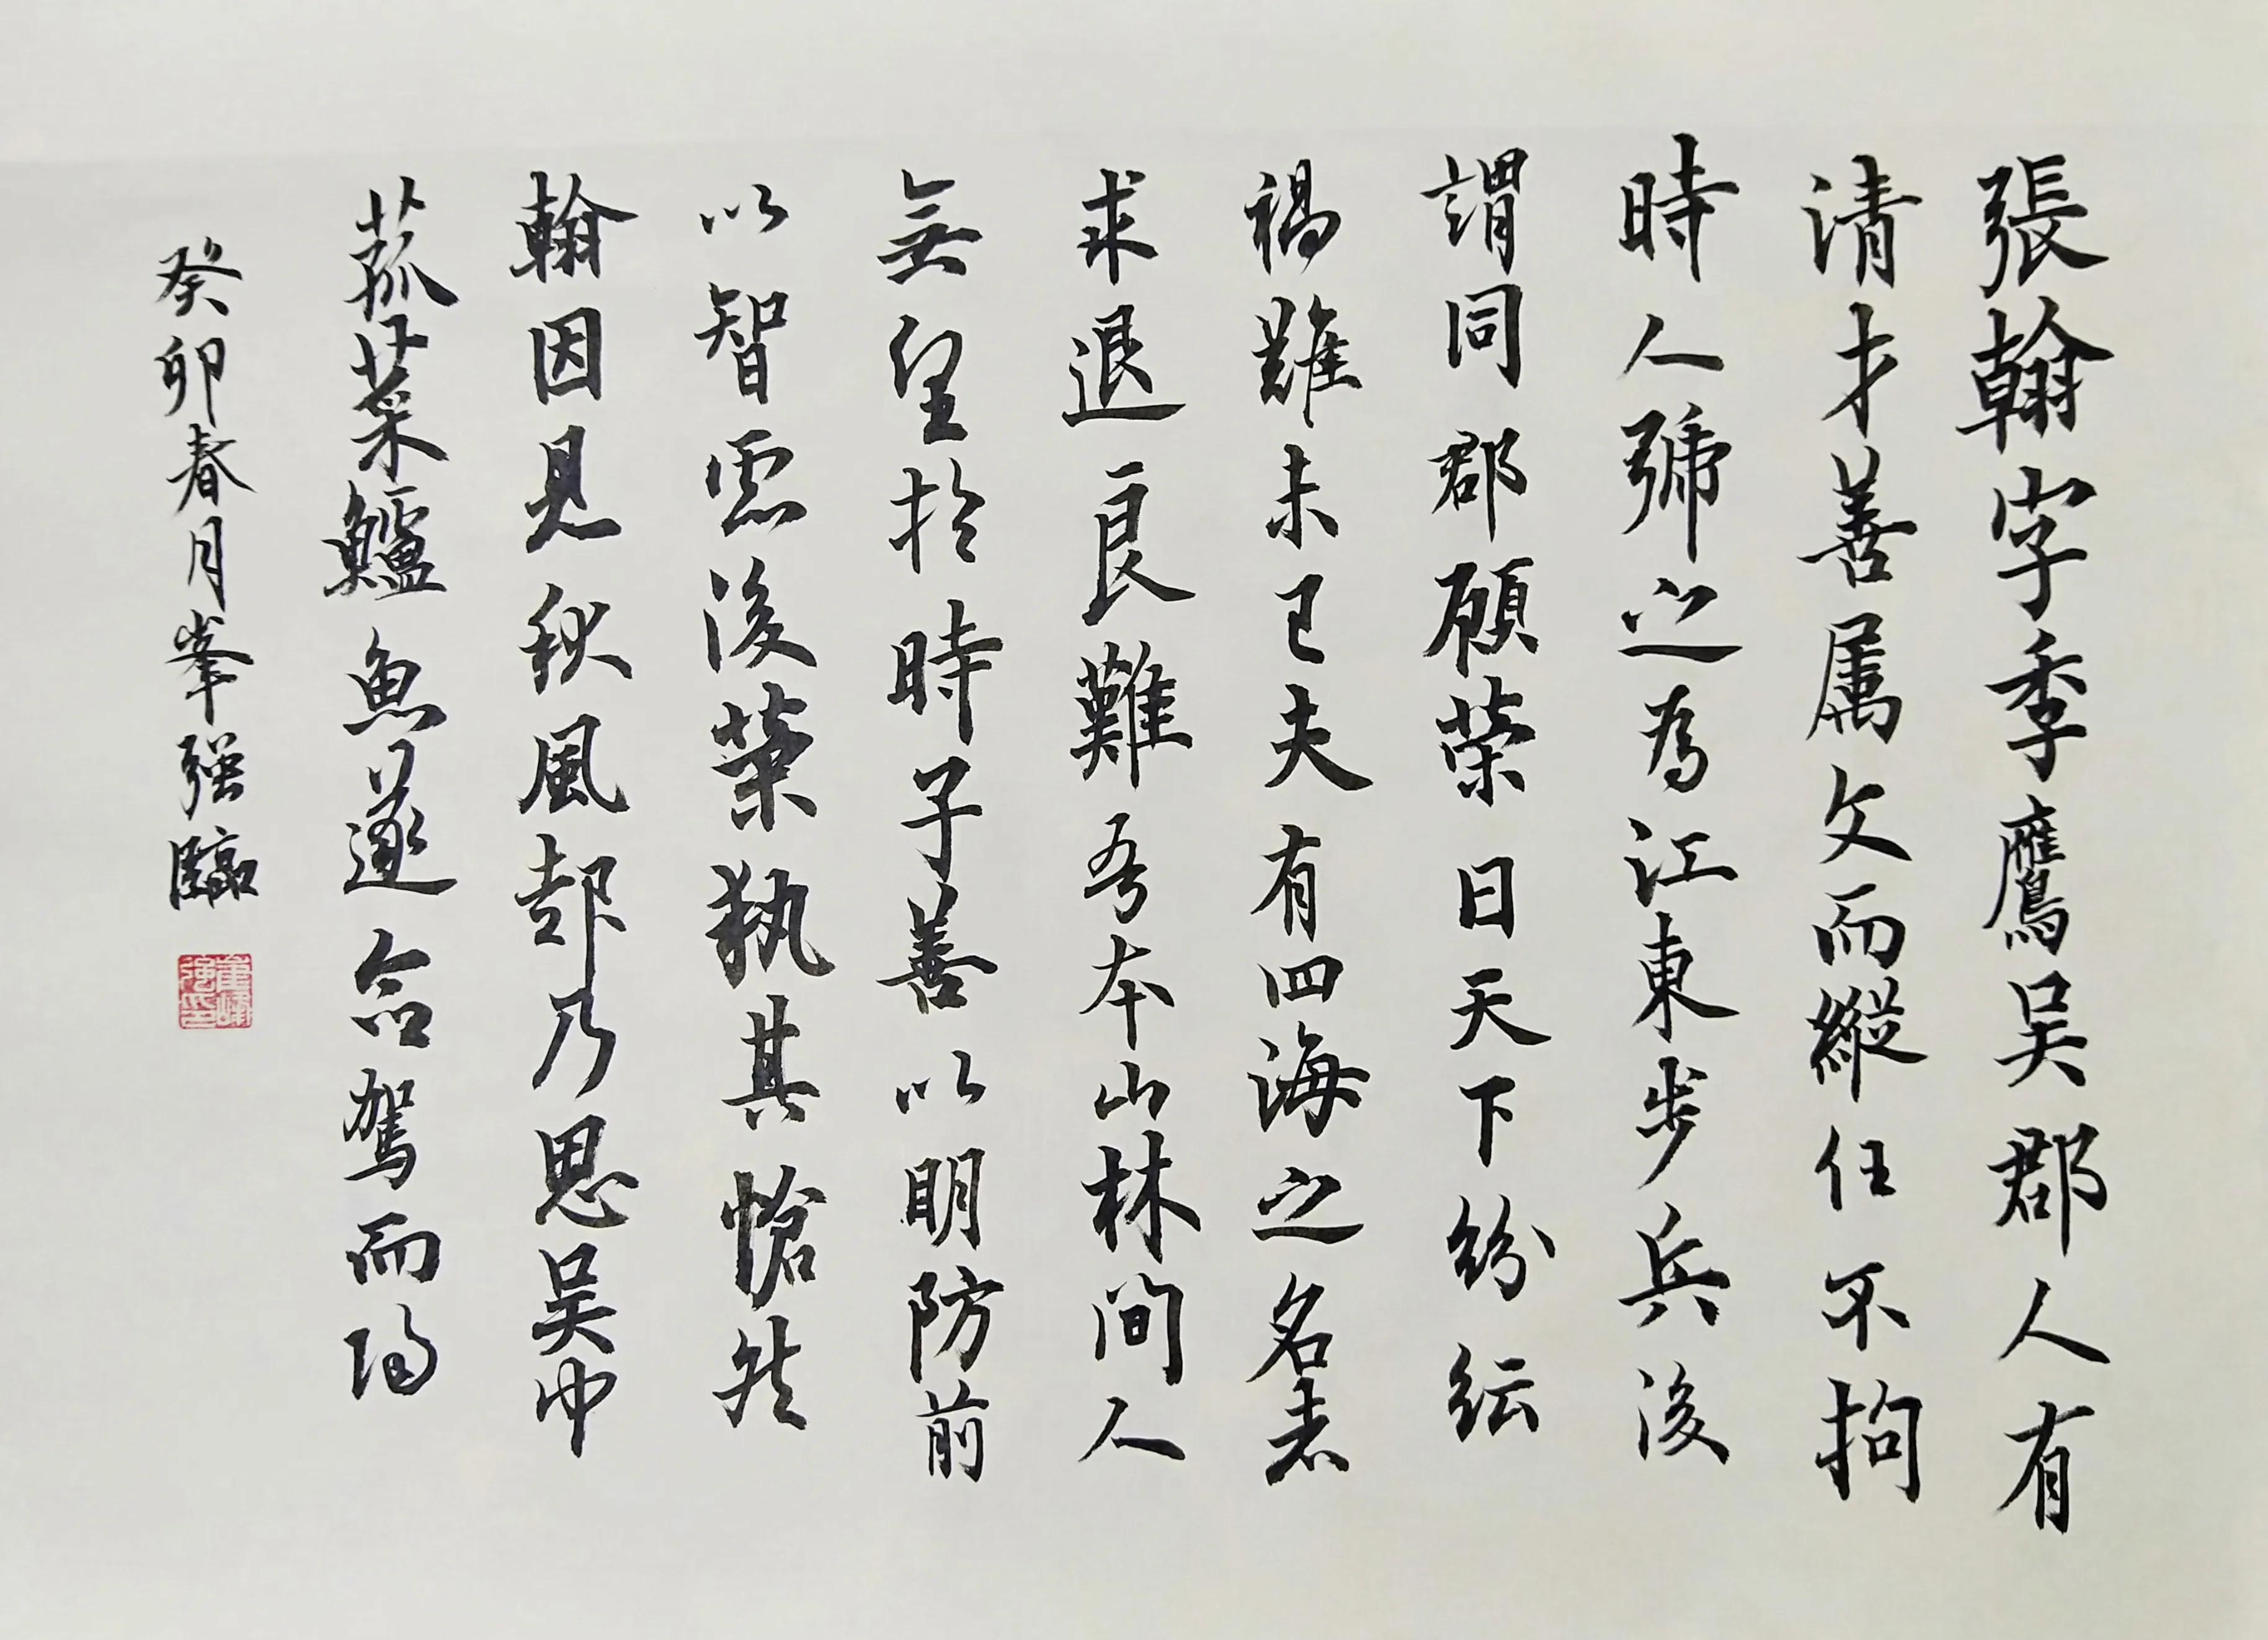 張翰字季鷹吳郡人有
清才善属文而縱任不拘
時人號之為江東步兵後
謂同郡顧榮曰天下紛紜
禍難未已夫有四海之名者
求退良難吾本山林間人
無望於時子善以明防前
以智慮後榮執其愴然
翰因見秋風起乃思吳中
菰菜鱸魚遂命駕而歸
癸卯春月峯强臨
崔峰强印